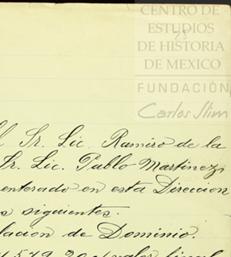 CENTRO DE
ESTUDIOS
DE HISTORIA
DE MEXICO
FUNDACIÓN
Carlos Slim
Sr. Lic. Ramiro de la
Sr. Lic. Pablo Martinez
enterado en esta Direccion
s siguientes.
lacion de Dominio.